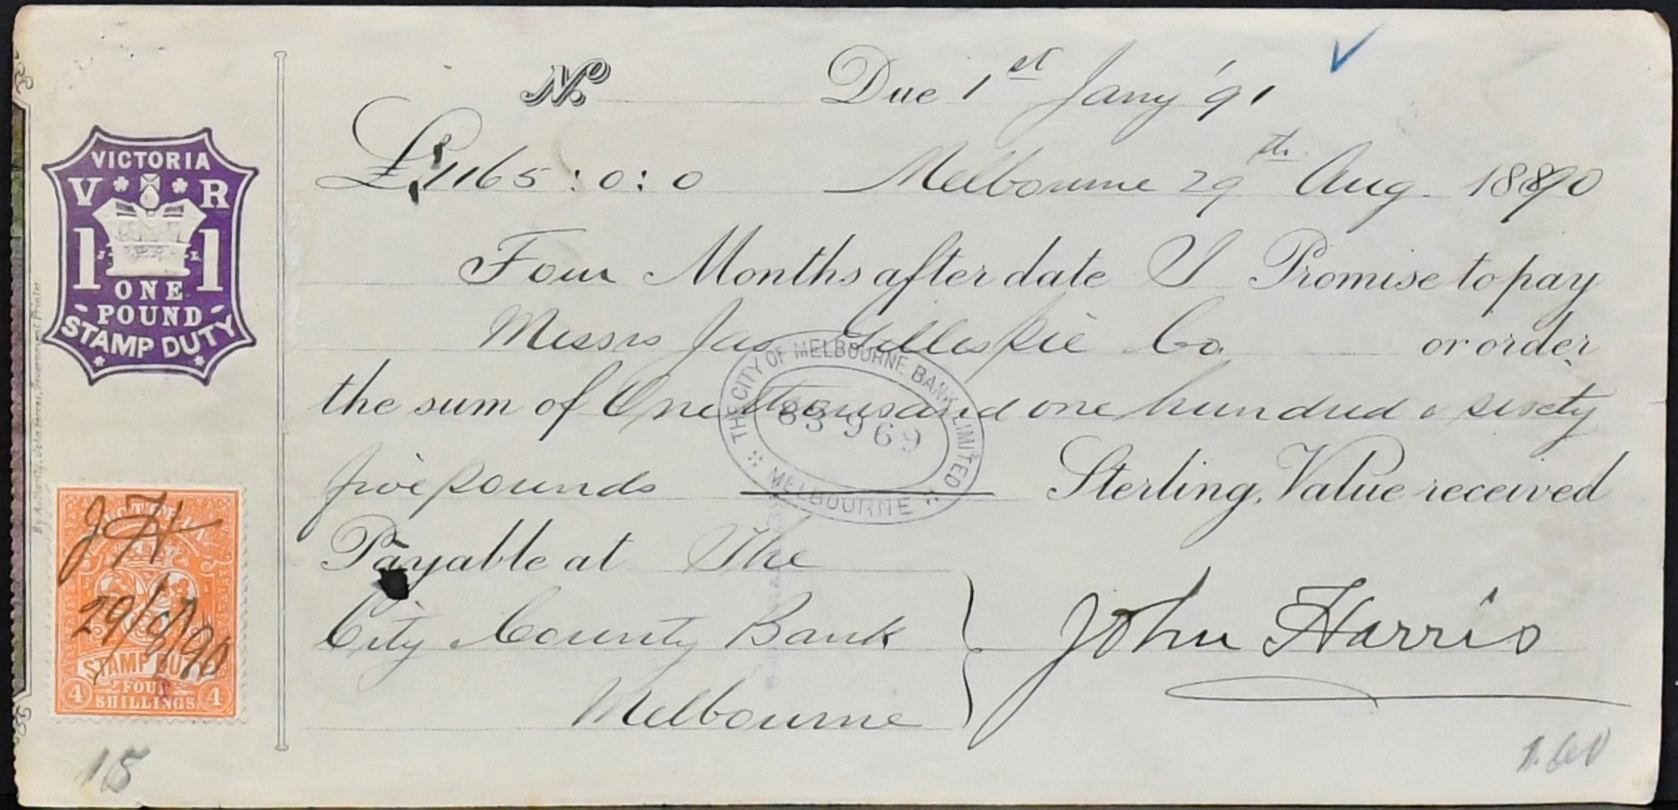 No Due 1st Jany '91
£1165:0:0 Melbourne 29th Aug. 1890
Four Months after date I Promise to pay
Messrs Jas Gillespie Co or order
the sum of One thousand one hundred & sixty
five pounds Sterling, Value received
Payable at The
City County Bank
Melbourne
John Harris
VICTORIA
V R
1 1
ONE
POUND
STAMP DUTY
By Authority, John Ferres, Government Printer
JH
VICTORIA
STAMP DUTY
4 FOUR 4
SHILLINGS
THE CITY OF MELBOURNE BANK LIMITED
83969
MELBOURNE
15